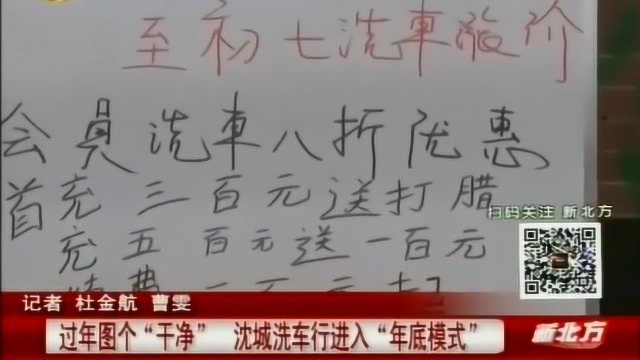 至初七洗車价
会員洗車八折优惠
首充三百元送打腊
充五百元送一百元
扫码关注 新北方
记者 杜金航 曹雯
过年图个“干净” 沈城洗车行进入“年底模式”
新北方